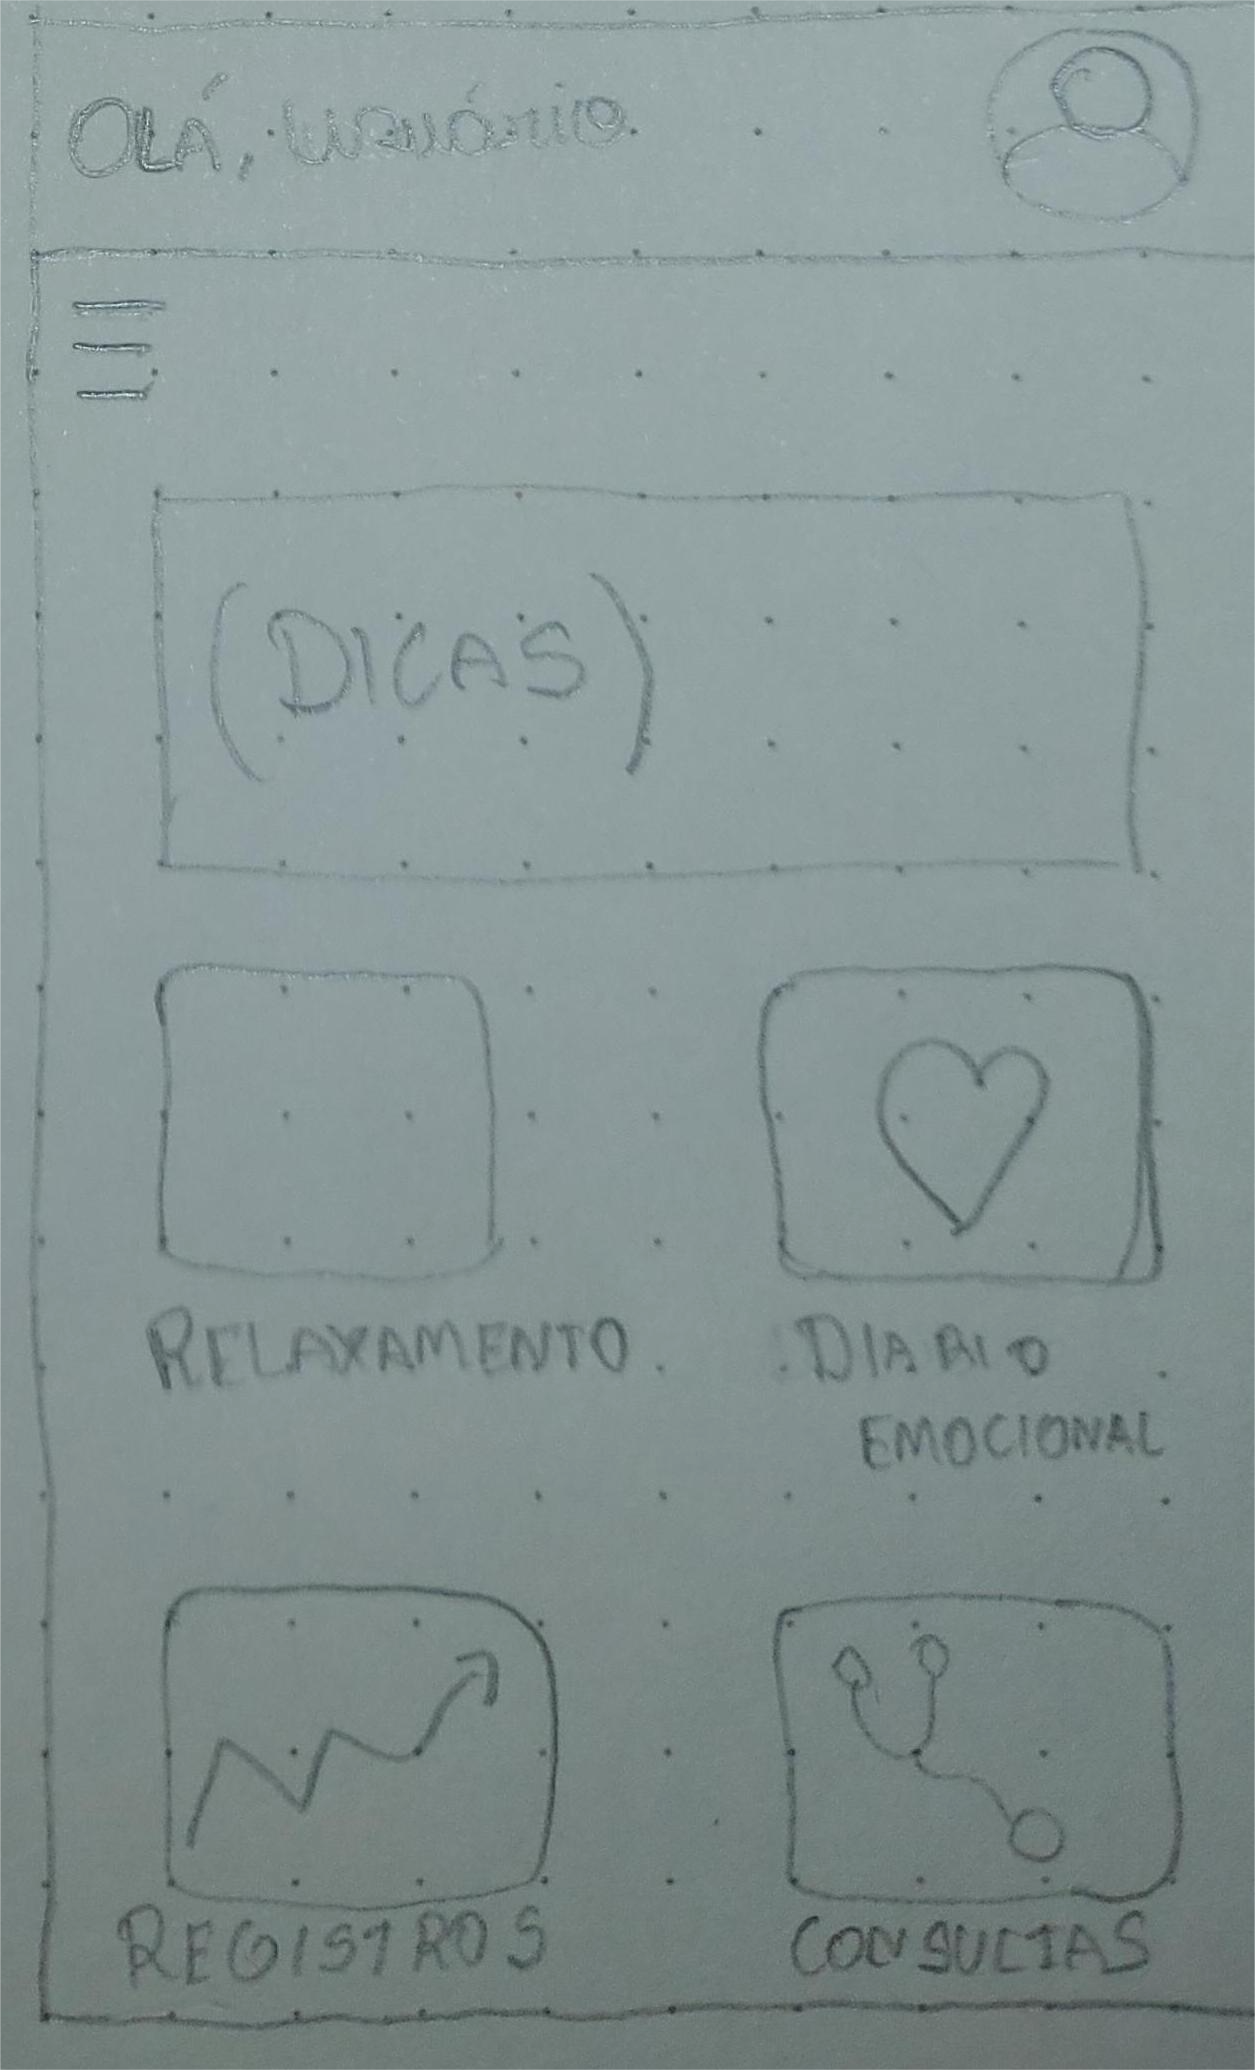 OLÁ, usuário
(DICAS)
RELAXAMENTO
DIARIO
EMOCIONAL
REGISTROS
CONSULTAS